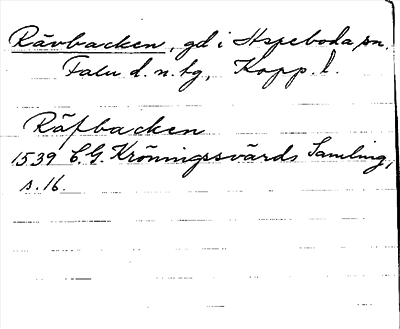 Rävbacken, gd i Aspeboda sn.
Falu d. n. tg, Kopp. l.
Räfbacken
1539 C. G. Kröningssvärds Samling,
s. 16.